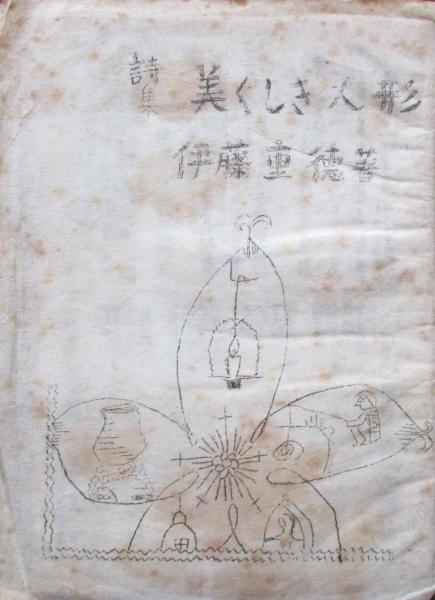 詩集 美くしき人形
伊藤重徳著
田